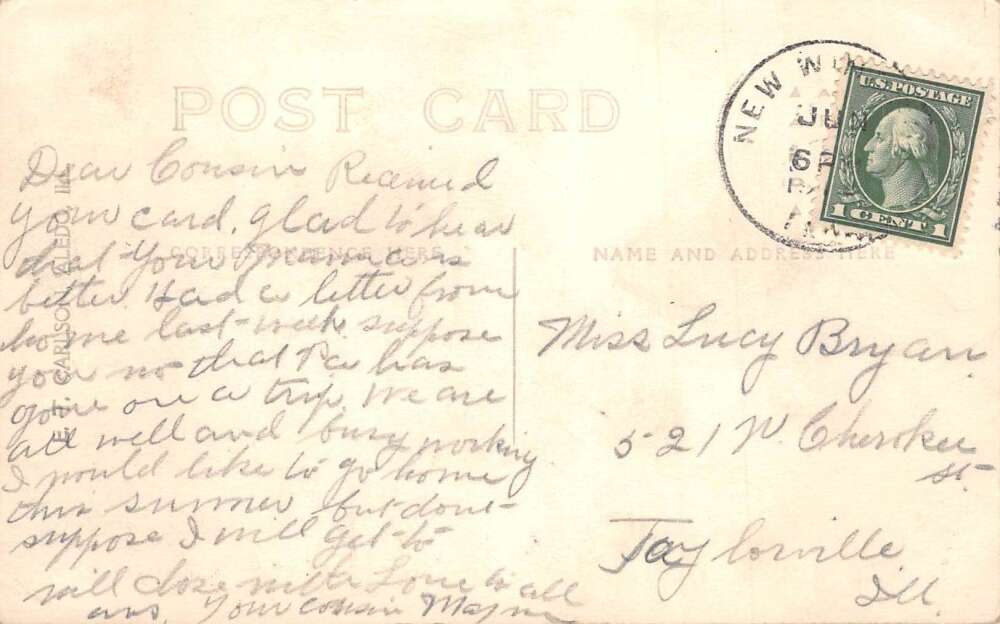 POST CARD
Dear Cousin Received
your card. glad to hear
that your Mamma is
better. Had a letter from
home last week suppose
you no that Pa has
gone on a trip. We are
all well and busy working
I would like to go home
this summer but dont
suppose I will get to
will close with Love to all
ans. Your cousin
CORRESPONDENCE HERE
CARLSON
NEW
JUN
6
U.S. POSTAGE
1 CENT 1
NAME AND ADDRESS HERE
Miss Lucy Bryan
521 W. Cherokee
st
Taylorville
Ill.